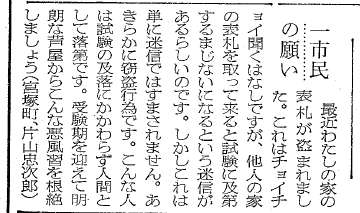 一市民
の願い
最近わたしの家の
表札が盗まれまし
た。これはチョイチ
ョイ聞くはなしですが、他人の家
の表札を取って来ると試験に及第
するまじないになるという迷信が
あるらしいのです。しかしこれは
単に迷信ではすまされません。あ
きらかに窃盗行為です。こんな人
は試験の及落にかかわらず人間と
して落第です。受験期を迎えて明
朗な芦屋からこんな悪風習を根絶
しましょう(宮塚町、片山忠次郎)